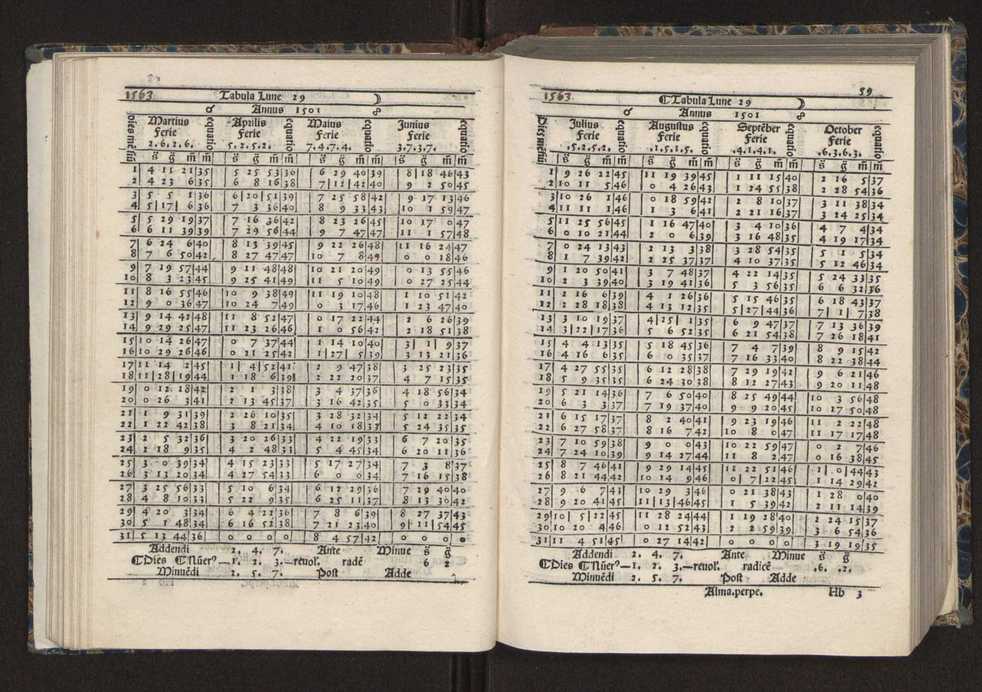 1563 Tabula Lune 29
Annus 1501
Martius Aprilis Maius Junius
Ferie Ferie Ferie Ferie
2.6.2.6. 5.2.5.2. 7.4.7.4. 3.7.3.7.
s g m m s g m m s g m m s g m m
1 4 11 21 35 5 25 53 36 6 29 40 39 8 18 46 43
2 4 23 6 35 6 8 16 38 7 11 41 40 9 2 50 45
3 5 5 1 36 6 20 51 39 7 25 58 42 9 17 13 46
4 5 17 6 36 7 3 36 40 8 9 33 43 10 1 59 47
5 5 29 19 37 7 16 36 42 8 23 26 45 10 17 0 47
6 6 11 39 39 7 29 56 44 9 7 47 47 11 1 57 48
7 6 24 6 40 8 13 39 45 9 22 26 48 11 16 24 47
8 7 6 50 42 8 27 47 47 10 7 8 49 0 0 18 46
9 7 19 57 44 9 11 48 48 10 21 20 49 0 13 55 46
10 8 3 23 45 9 25 41 49 11 5 10 49 0 27 25 44
11 8 16 55 46 10 9 38 49 11 19 10 48 1 10 51 42
12 9 0 36 47 10 24 7 49 0 3 17 46 1 23 47 40
13 9 14 42 48 11 8 52 47 0 17 22 44 2 6 26 39
14 9 29 25 47 11 23 26 46 1 0 56 42 2 18 51 38
15 10 14 26 47 0 7 37 44 1 14 10 40 3 1 9 37
16 10 29 26 46 0 21 25 42 1 27 5 39 3 13 21 36
17 11 14 2 45 1 4 52 41 2 9 47 38 3 25 23 35
18 11 28 19 44 1 18 6 39 2 22 20 37 4 7 15 35
19 0 12 18 42 2 1 3 38 3 4 37 36 4 18 56 34
20 0 26 3 41 2 13 45 37 3 16 42 35 5 0 33 34
21 1 9 31 39 2 26 10 35 3 28 32 34 5 12 22 34
22 1 22 42 38 3 8 21 34 4 10 18 33 5 24 35 35
23 2 5 32 36 3 20 26 33 4 22 19 33 6 7 20 35
24 2 18 9 35 4 2 48 33 5 4 45 34 6 20 11 36
25 3 0 39 34 4 15 23 33 5 17 27 34 7 3 8 37
26 3 13 10 34 4 27 54 33 6 0 0 34 7 16 15 38
27 3 25 56 33 5 10 6 34 6 12 29 36 7 29 40 40
28 4 8 10 33 5 22 9 35 6 25 11 37 8 13 36 42
29 4 20 3 34 6 4 22 36 7 8 6 39 8 27 37 43
30 5 1 48 34 6 16 52 38 7 21 23 40 9 11 54 45
31 5 13 44 36 0 0 0 0 8 4 57 42 0 0 0 0
Addendi 2. 4. 7. Ante Minue s g
Dies Nũer⁹ —1. 2. 3.—reuol'. radē 6 2
Minuẽdi 2. 5. 7. Post Adde
59
1563 Tabula Lune 29
Annus 1501
Julius Augustus Septẽber October
Ferie Ferie Ferie Ferie
.5.2.5.2. .1.5.1.5. .4.1.4.1. .6.3.6.3.
s g m m s g m m s g m m s g m m
1 9 26 22 45 11 19 39 45 1 11 15 40 2 16 5 37
2 10 11 5 46 0 4 26 43 1 24 55 38 2 28 54 36
3 10 26 1 46 0 18 59 42 2 8 10 37 3 11 38 34
4 11 11 1 46 1 3 6 41 2 21 16 37 3 24 25 34
5 11 25 56 45 1 16 47 40 3 4 10 36 4 7 4 34
6 0 10 21 44 2 0 6 39 3 16 48 35 4 19 17 34
7 0 24 13 43 2 13 3 38 3 28 54 35 5 1 5 34
8 1 7 39 42 2 25 37 37 4 10 37 35 5 12 46 34
9 1 20 50 41 3 7 48 37 4 22 14 35 5 24 33 35
10 2 3 39 40 3 19 41 36 5 3 56 35 6 6 32 36
11 2 16 6 39 4 1 26 36 5 15 46 35 6 18 43 37
12 2 28 18 38 4 13 12 35 5 27 44 36 7 1 7 38
13 3 10 19 37 4 25 1 35 6 9 47 37 7 13 36 39
14 3 22 17 36 5 6 52 35 6 21 54 38 7 26 18 41
15 4 4 13 35 5 18 45 36 7 4 7 39 8 9 15 42
16 4 16 6 35 6 0 35 37 7 16 33 40 8 22 38 44
17 4 27 55 35 6 12 28 38 7 29 19 42 9 6 21 46
18 5 9 35 35 6 24 30 38 8 12 27 43 9 20 11 48
19 5 21 14 36 7 6 50 40 8 25 49 44 10 3 56 48
20 6 3 3 37 7 19 37 40 9 9 20 45 10 17 50 48
21 6 15 17 37 8 2 40 41 9 23 19 46 11 2 22 48
22 6 27 58 37 8 16 7 42 10 8 0 47 11 17 17 48
23 7 10 59 38 9 0 0 43 10 22 59 47 0 2 7 46
24 7 24 10 39 9 14 27 44 11 8 2 47 0 16 38 45
25 8 7 46 41 9 29 14 45 11 22 51 46 1 0 44 43
26 8 21 44 42 10 14 9 46 0 7 12 45 1 14 29 42
27 9 6 7 43 10 29 3 46 0 21 38 43 1 28 0 40
28 9 20 41 45 11 13 46 45 1 5 39 42 2 11 14 39
29 10 5 22 45 11 28 24 44 1 19 28 40 2 24 15 37
30 10 20 4 46 0 12 52 43 2 2 59 39 3 6 54 36
31 11 4 51 45 0 27 14 42 0 0 0 0 3 19 19 35
Addendi 2. 4. 7. Ante Minue s g
Dies Nũer⁹ —1. 2. 3.—reuol'. radicē .6. .2.
Minuẽdi 2. 5. 7. Post Adde
Alma.perpe. Hb 3